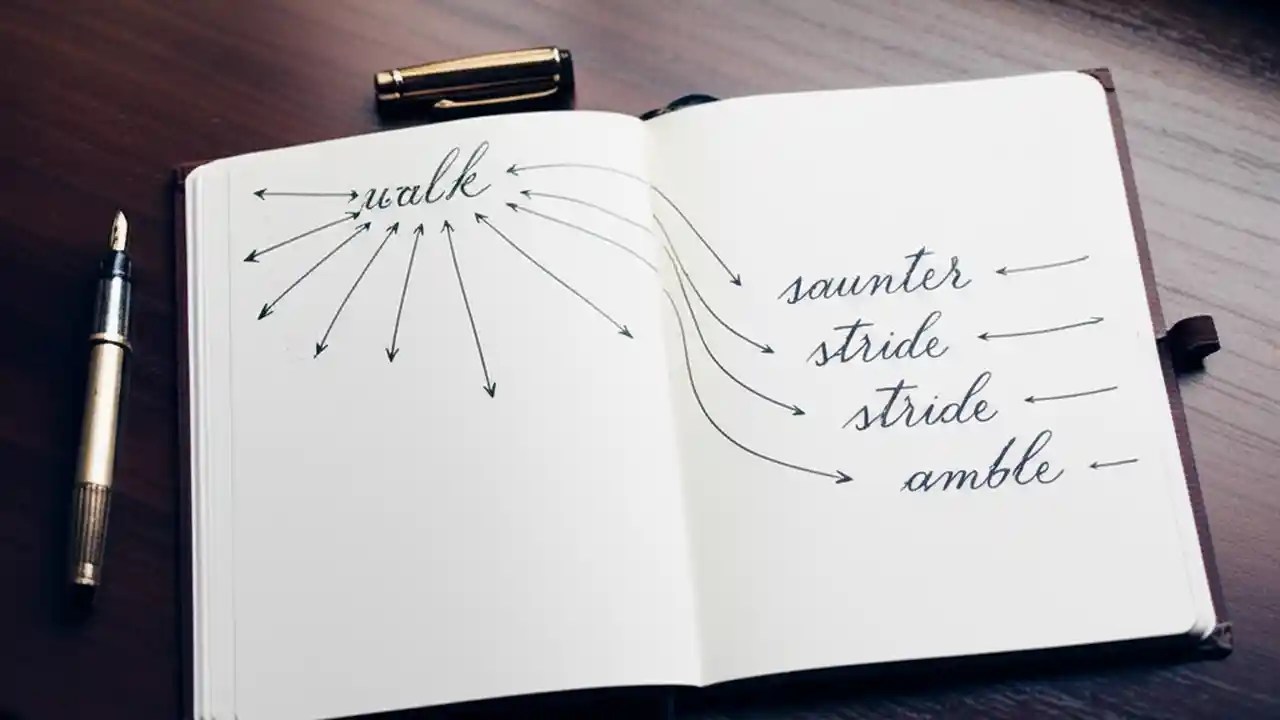 walk
saunter
stride
stride
amble